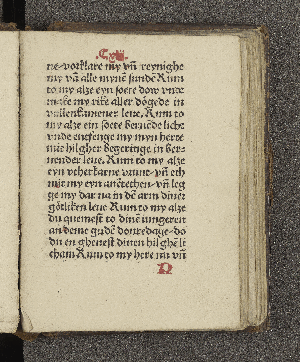 ne vorklare my vn̄ reynighe
my vā alle mynē sundē Kum
to my alze eyn soete dow vnde
make my rike aller dögede in
vullenkamener leue. Kum to
my alze ein soete bernēde licht
vnde entfenge myn herte
mit hilgher begeringe in ber-
nender leue. Kum to my alze
eyn vorherkarne vrunt vn̄ eth
mit my eyn auētethen vn̄ leg
ge my dar na in dē arm diner
götliken leue Kum to my alze
du quemest to dinē iungeren
an deme gudē donredage do
du en gheuest dinen hilghē li
cham Kum to my here nu vn̄